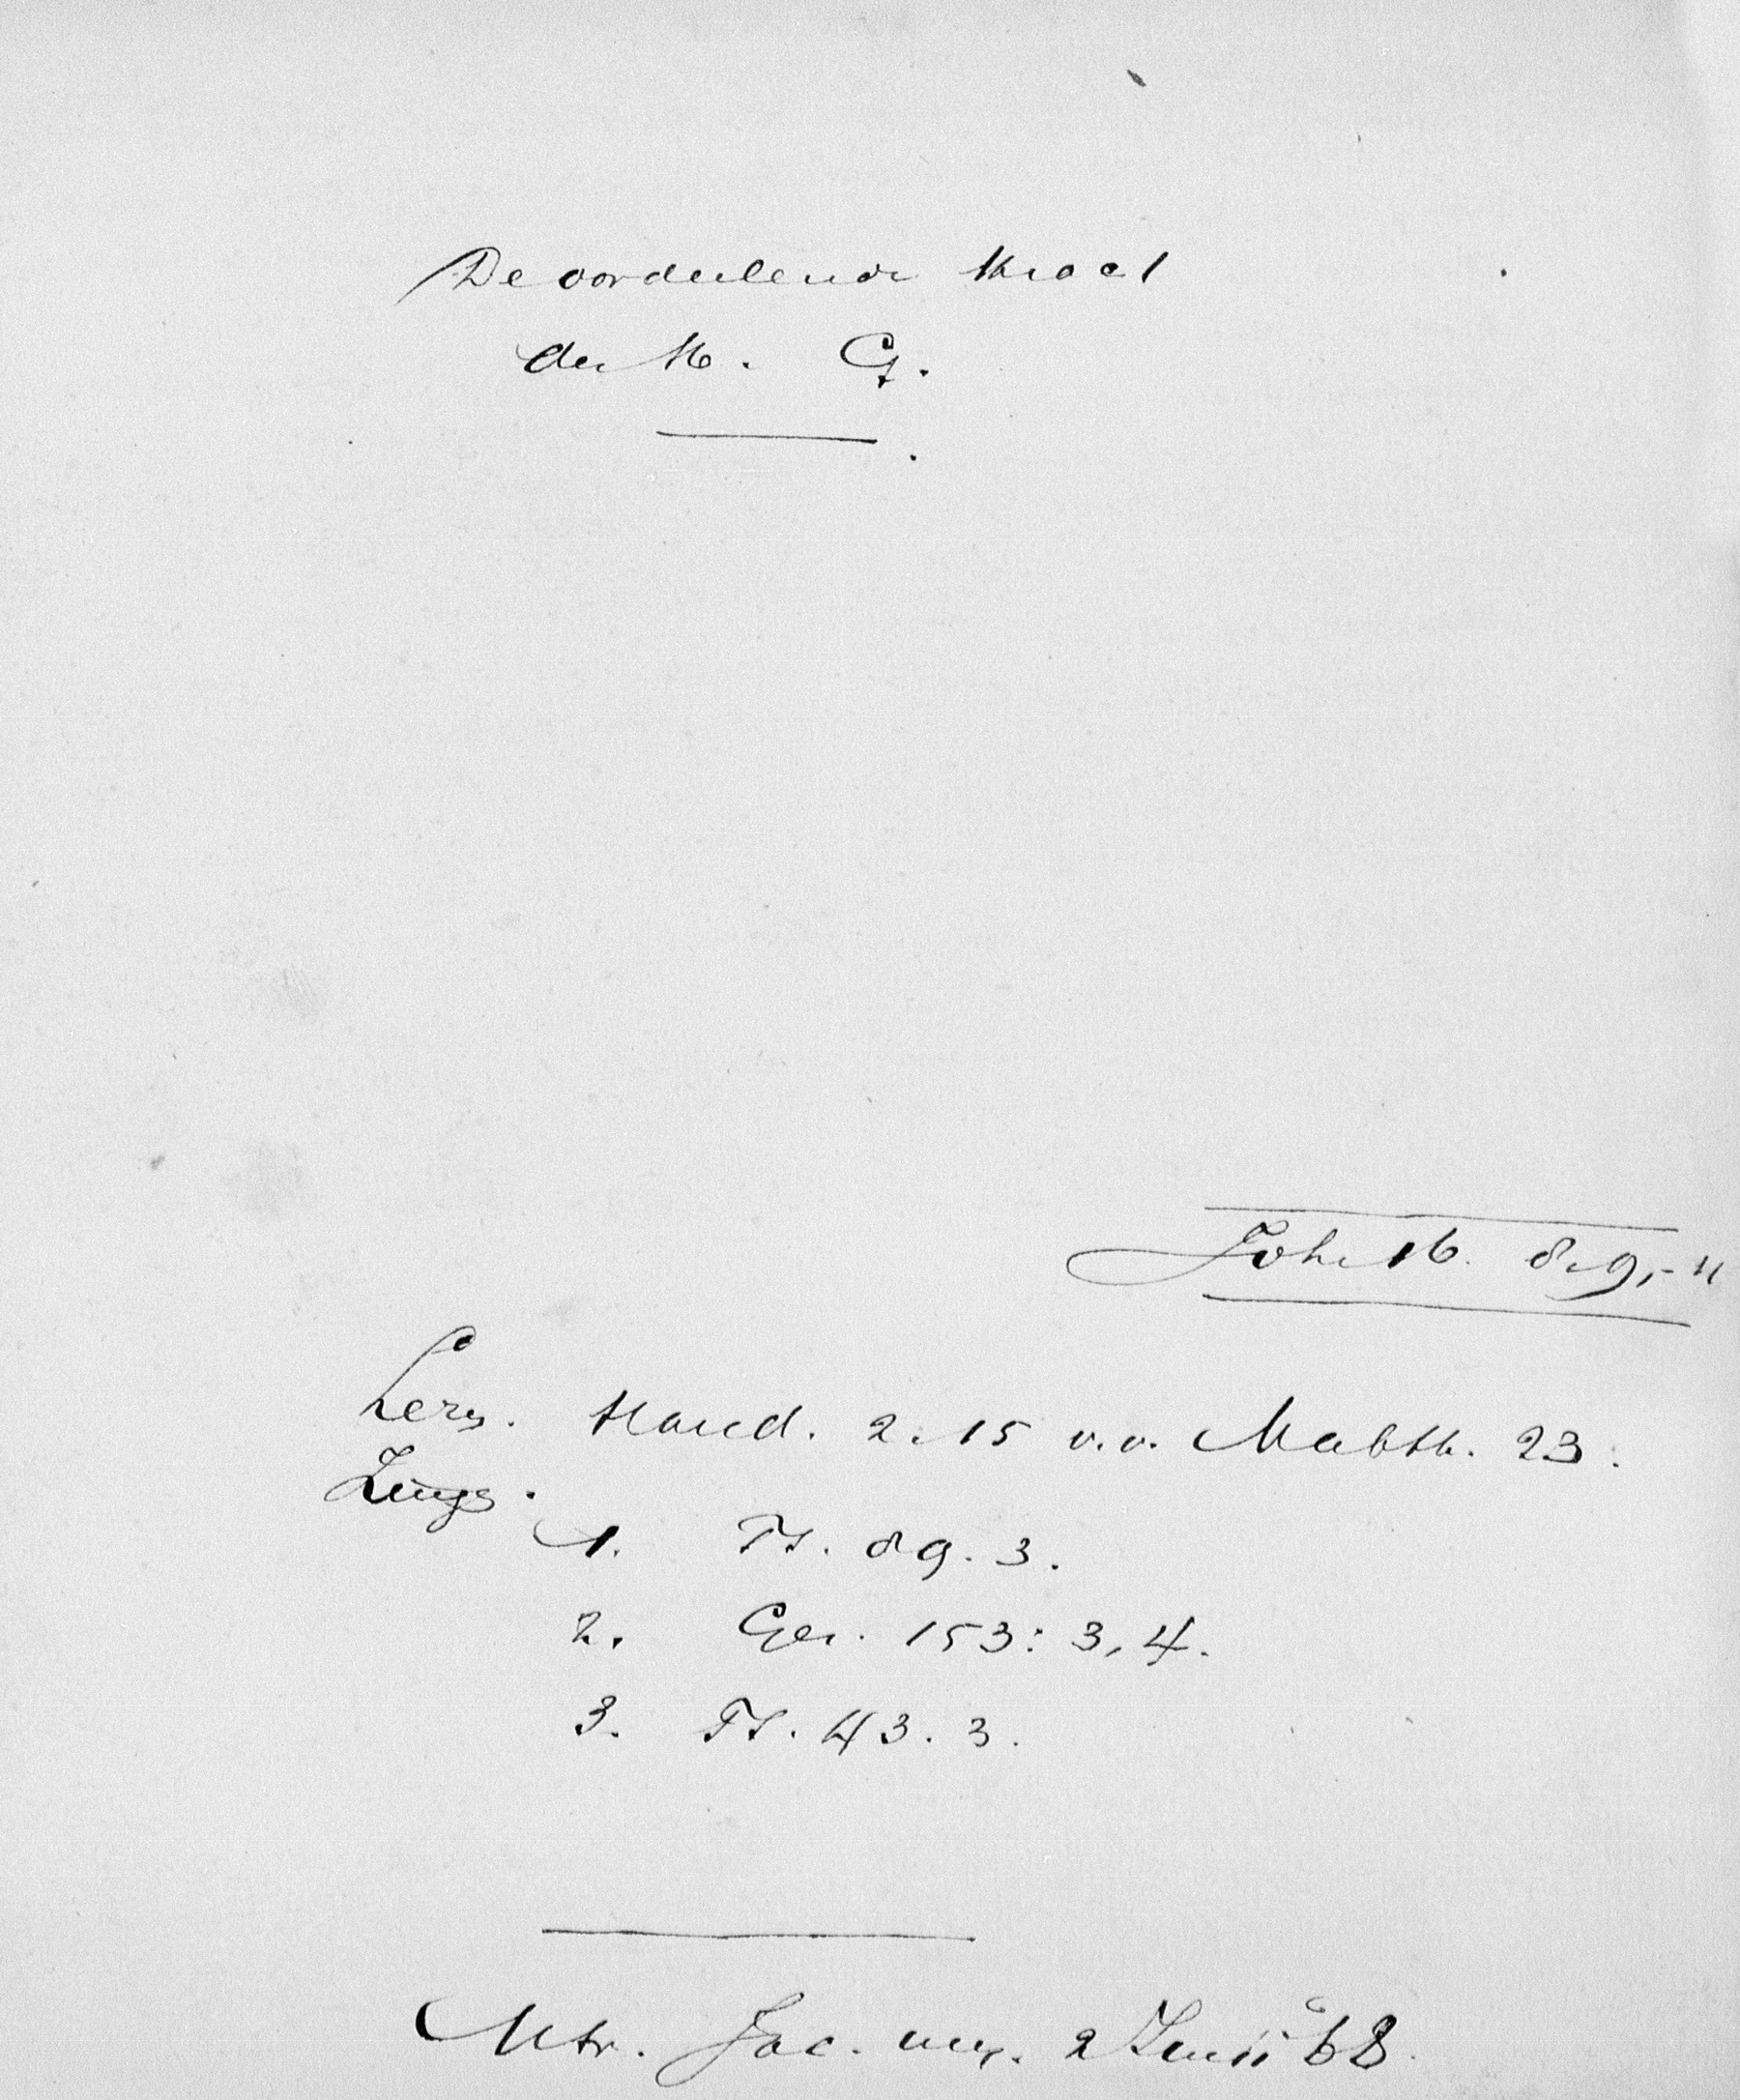 De oordeelende Kracht
der H. G.
Joh. 16. 8, 9, - 11
Lezen. Hand. 2. 15 v.v. Matth. 23.
Zings.
1. Ps. 89. 3.
2. Gez. 153: 3, 4.
3. Ps. 43. 3.
Utr. Jac. 2 Junij 68.